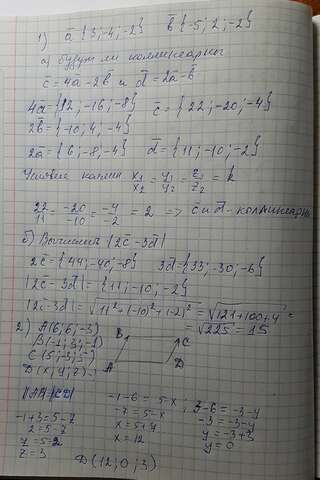 1) a̅ {3;-4;-2} b̅ {-5; 2; -2}
а) будут ли коллинеарны
c̅ = 4a̅ - 2b̅ и d̅ = 2a̅ - b̅
4a̅ = {12, -16, -8} c̅ = {22, -20, -4}
2b̅ = {-10, 4, -4}
2a̅ = {6, -8, -4} d̅ = {11, -10, -2}
Условие коллин x₁/x₂ = y₁/y₂ = z₁/z₂ = k
22/11 = -20/-10 = -4/-2 = 2 => c̅ и d̅ - коллинеарны
б) Вычислить |2c̅ - 3d̅|
2c̅ = {44, -40, -8} 3d̅ = {33, -30, -6}
|2c̅ - 3d̅| = {11, -10, -2}
|2c̅ - 3d̅| = √(11² + (-10)² + (-2)²) = √(121+100+4) =
= √225 = 15
2) A(6; 6; -3) B C
B(-1; 3; -1)
C(5; -3; -7) A D
D(x, y, z)
-1+3 = 5-z -1-6 = 5-x 3-6 = -3-y
2 = 5-z -7 = 5-x -3 = -3-y
z = 5-2 x = 5+7 y = -3+3
z = 3 x = 12 y = 0
D(12; 0; 3)